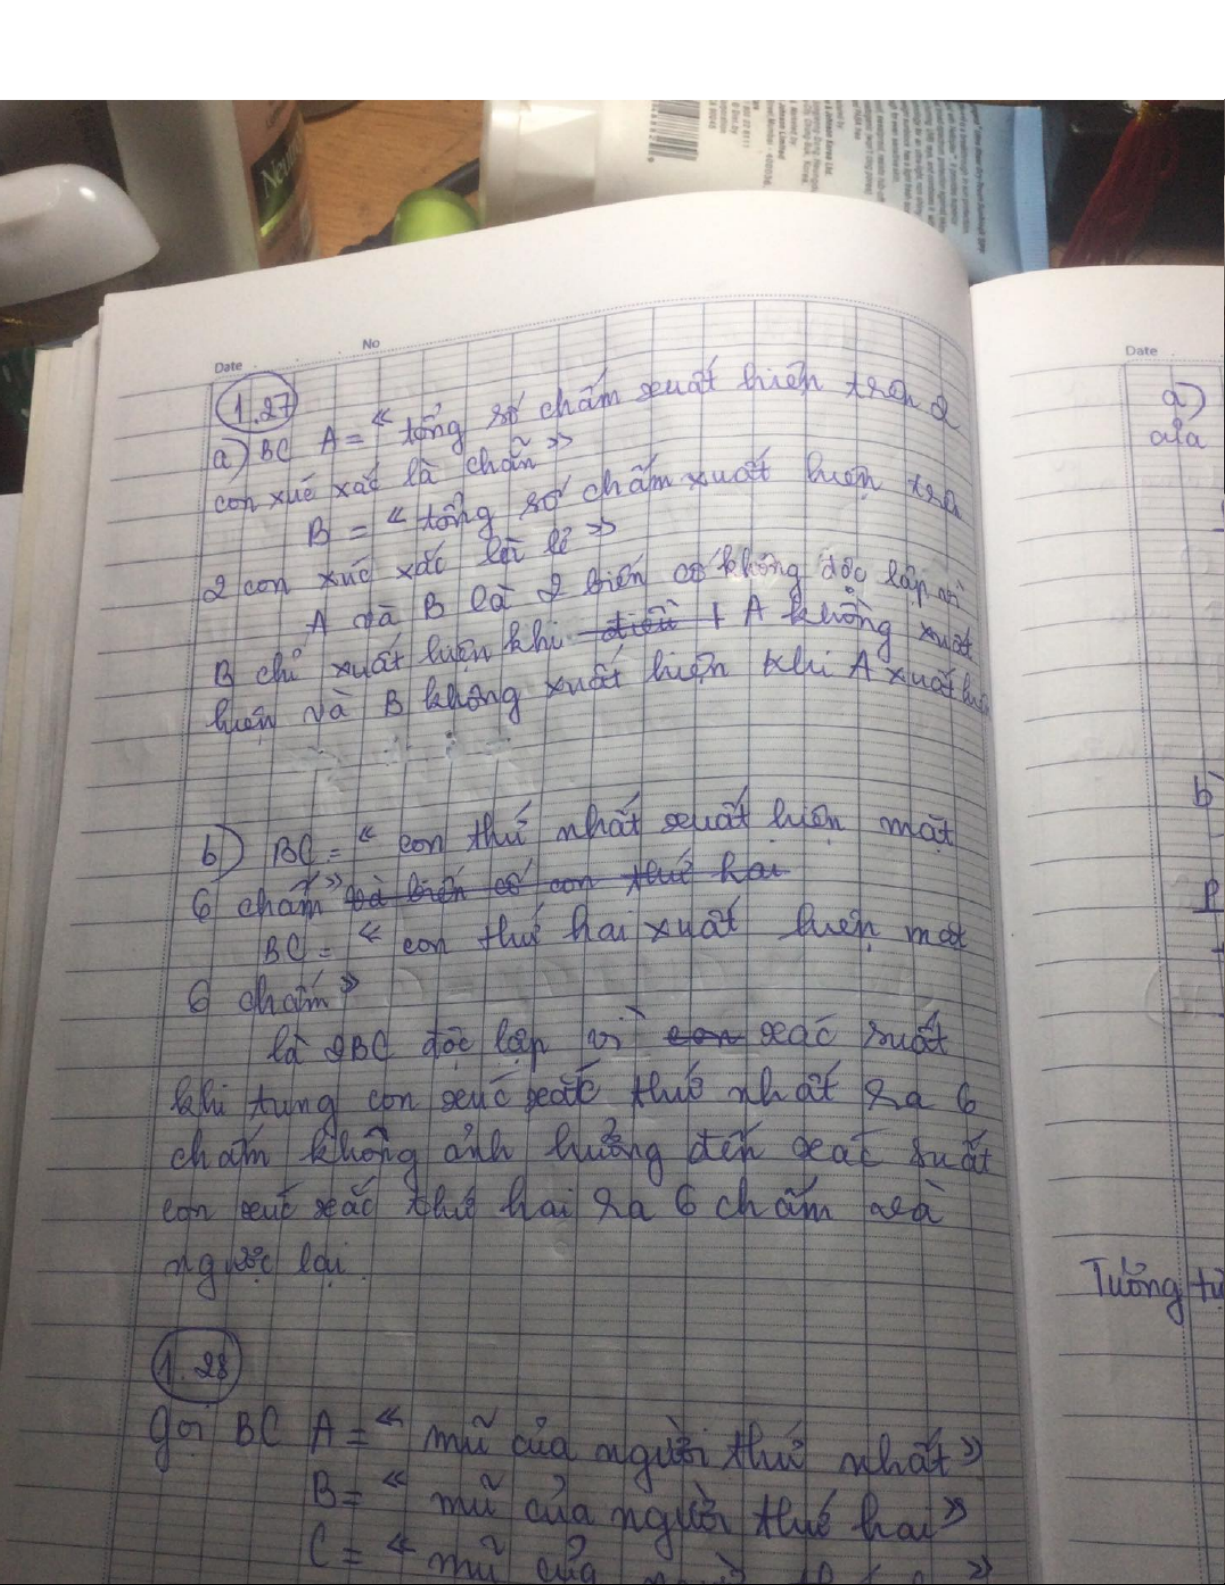 Neutrog
Date
No
1.27
a) BC A = " tổng số chấm xuất hiện trên 2
con xúc xắc là chẵn "
B = " tổng số chấm xuất hiện trên
2 con xúc xắc là lẻ "
A và B là 2 biến cố không độc lập vì
B chỉ xuất hiện khi A không xuất
hiện và B không xuất hiện khi A xuất hiện
b) BC = " con thứ nhất xuất hiện mặt
6 chấm " và biến cố con thứ hai
BC = " con thứ hai xuất hiện mặt
6 chấm "
là 2BC độc lập vì con xác suất
khi tung con xúc xắc thứ nhất ra 6
chấm không ảnh hưởng đến xác suất
con xúc xắc thứ hai ra 6 chấm và
ngược lại.
1.28
gọi BC A = " mũ của người thứ nhất "
B = " mũ của người thứ hai "
C = " mũ của
Date
a)
b
P
Tương tự